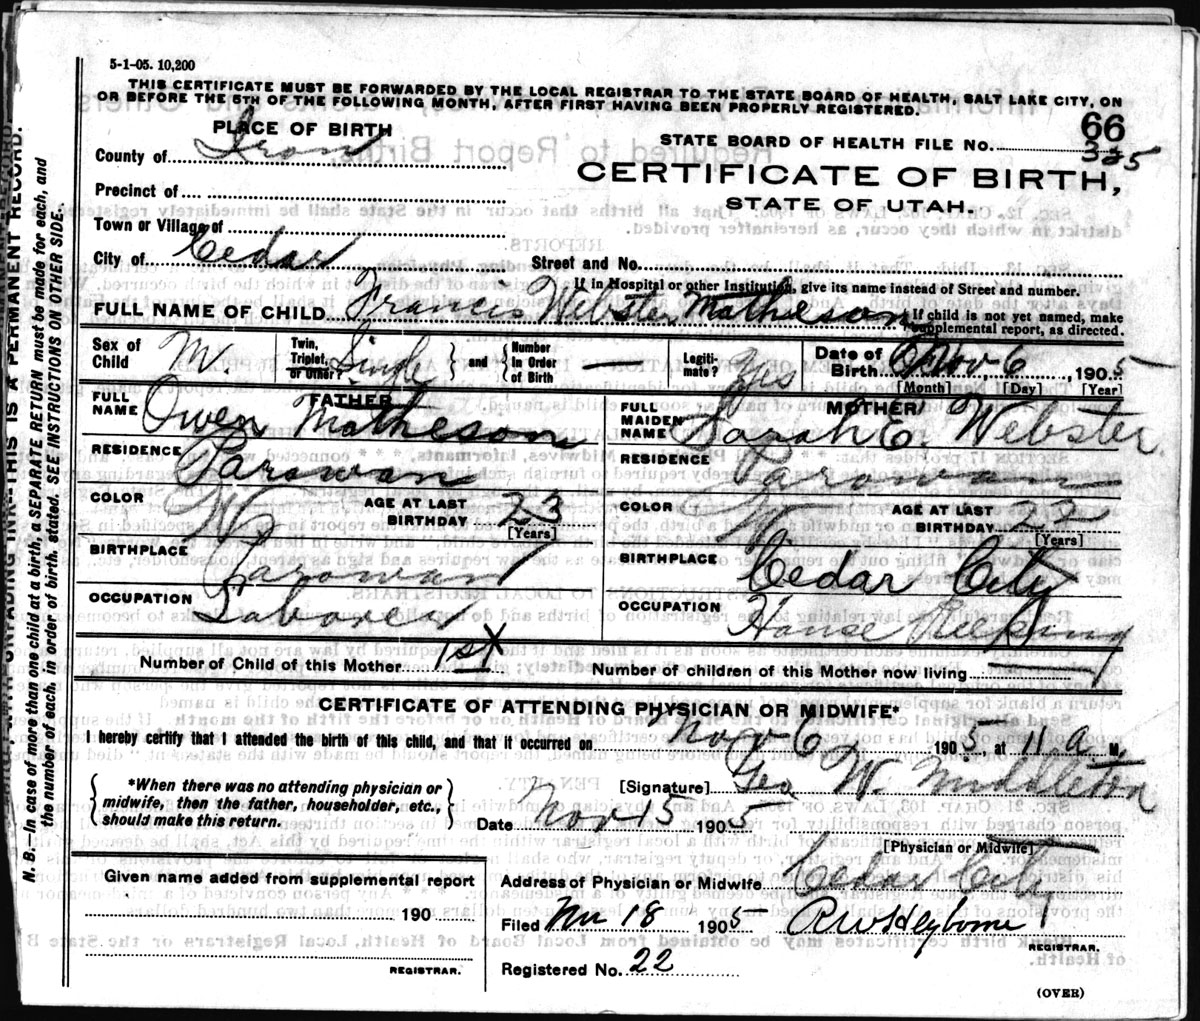 5-1-05. 10,200
THIS CERTIFICATE MUST BE FORWARDED BY THE LOCAL REGISTRAR TO THE STATE BOARD OF HEALTH, SALT LAKE CITY, ON
OR BEFORE THE 5TH OF THE FOLLOWING MONTH, AFTER FIRST HAVING BEEN PROPERLY REGISTERED.
66
PLACE OF BIRTH
STATE BOARD OF HEALTH FILE No. 325
County of Iron
CERTIFICATE OF BIRTH,
STATE OF UTAH.
Precinct of
Town or Village of
City of Cedar
Street and No.
If in Hospital or other Institution, give its name instead of Street and number.
FULL NAME OF CHILD Francis Webster Matheson
If child is not yet named, make supplemental report, as directed.
Sex of Child M.
Twin, Triplet, or Other? Single
and
Number in Order of Birth —
Legitimate? Yes
Date of Birth Nov 6, 1905
[Month] [Day] [Year]
FATHER
FULL NAME Owen Matheson
RESIDENCE Parowan
COLOR W
AGE AT LAST BIRTHDAY 23
[Years]
BIRTHPLACE Parowan
OCCUPATION Laborer
MOTHER
FULL MAIDEN NAME Sarah E. Webster
RESIDENCE Parowan
COLOR W
AGE AT LAST BIRTHDAY 22
[Years]
BIRTHPLACE Cedar City
OCCUPATION House Keeping
Number of Child of this Mother 1st X
Number of children of this Mother now living
CERTIFICATE OF ATTENDING PHYSICIAN OR MIDWIFE*
I hereby certify that I attended the birth of this child, and that it occurred on Nov 6 1905, at 11 a M.
*When there was no attending physician or
midwife, then the father, householder, etc.,
should make this return.
[Signature] Geo W. Middleton
Date Nov 15 1905
[Physician or Midwife]
Given name added from supplemental report
190
REGISTRAR.
Address of Physician or Midwife Cedar City
Filed Nov 18 1905 R W Heyborne
REGISTRAR.
Registered No. 22
(OVER)
N. B.—In case of more than one child at a birth, a SEPARATE RETURN must be made for each, and
the number of each, in order of birth, stated. SEE INSTRUCTIONS ON OTHER SIDE.
UNFADING INK--THIS IS A PERMANENT RECORD.